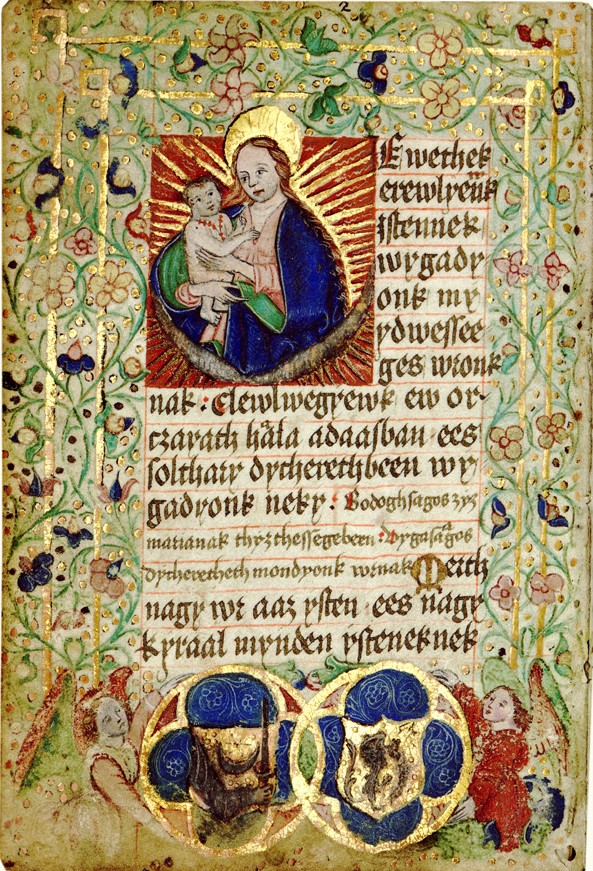 2
Ewethek
erewlyenk
jstennek
wygady
onk my
ydwessee
ges wronk
nak : elewlwegyewk ew or-
czayath hàla adaasban ees
solthair dycherethbeen wy
gadyonk neky : Bodoghsagos zyz
marianak thyzthessegebeen : wygasagos
dycheretheth mondyonk wrnak Merth
nagy wr aaz ysten · ees nagy
kyraal mynden ysteneknek